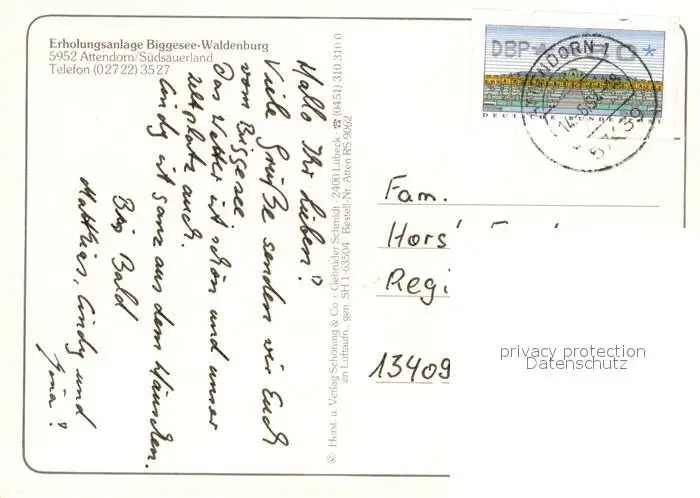 Erholungsanlage Biggesee-Waldenburg
5952 Attendorn/Südsauerland
Telefon (02722) 3527
Hallo Ihr Lieben!
Viele Grüße senden wir Euch
vom Biggesee
Das Wetter ist schön und unser
Zeltplatz auch.
Cindy ist ganz aus dem Häuschen.
Bis Bald
Matthias, Cindy und
© Herst. u. Verlag Schöning & Co + Gebrüder Schmidt · 2400 Lübeck · ☎ (0451) 310 310 0
en Luftaufn., gen. SH 1-63504 · Bestell-Nr. Atten RS 9062
DBP
DEUTSCHE BUNDESPOST
ATTENDORN 1
57439
Fam.
Hors
Regi
13409
privacy protection
Datenschutz